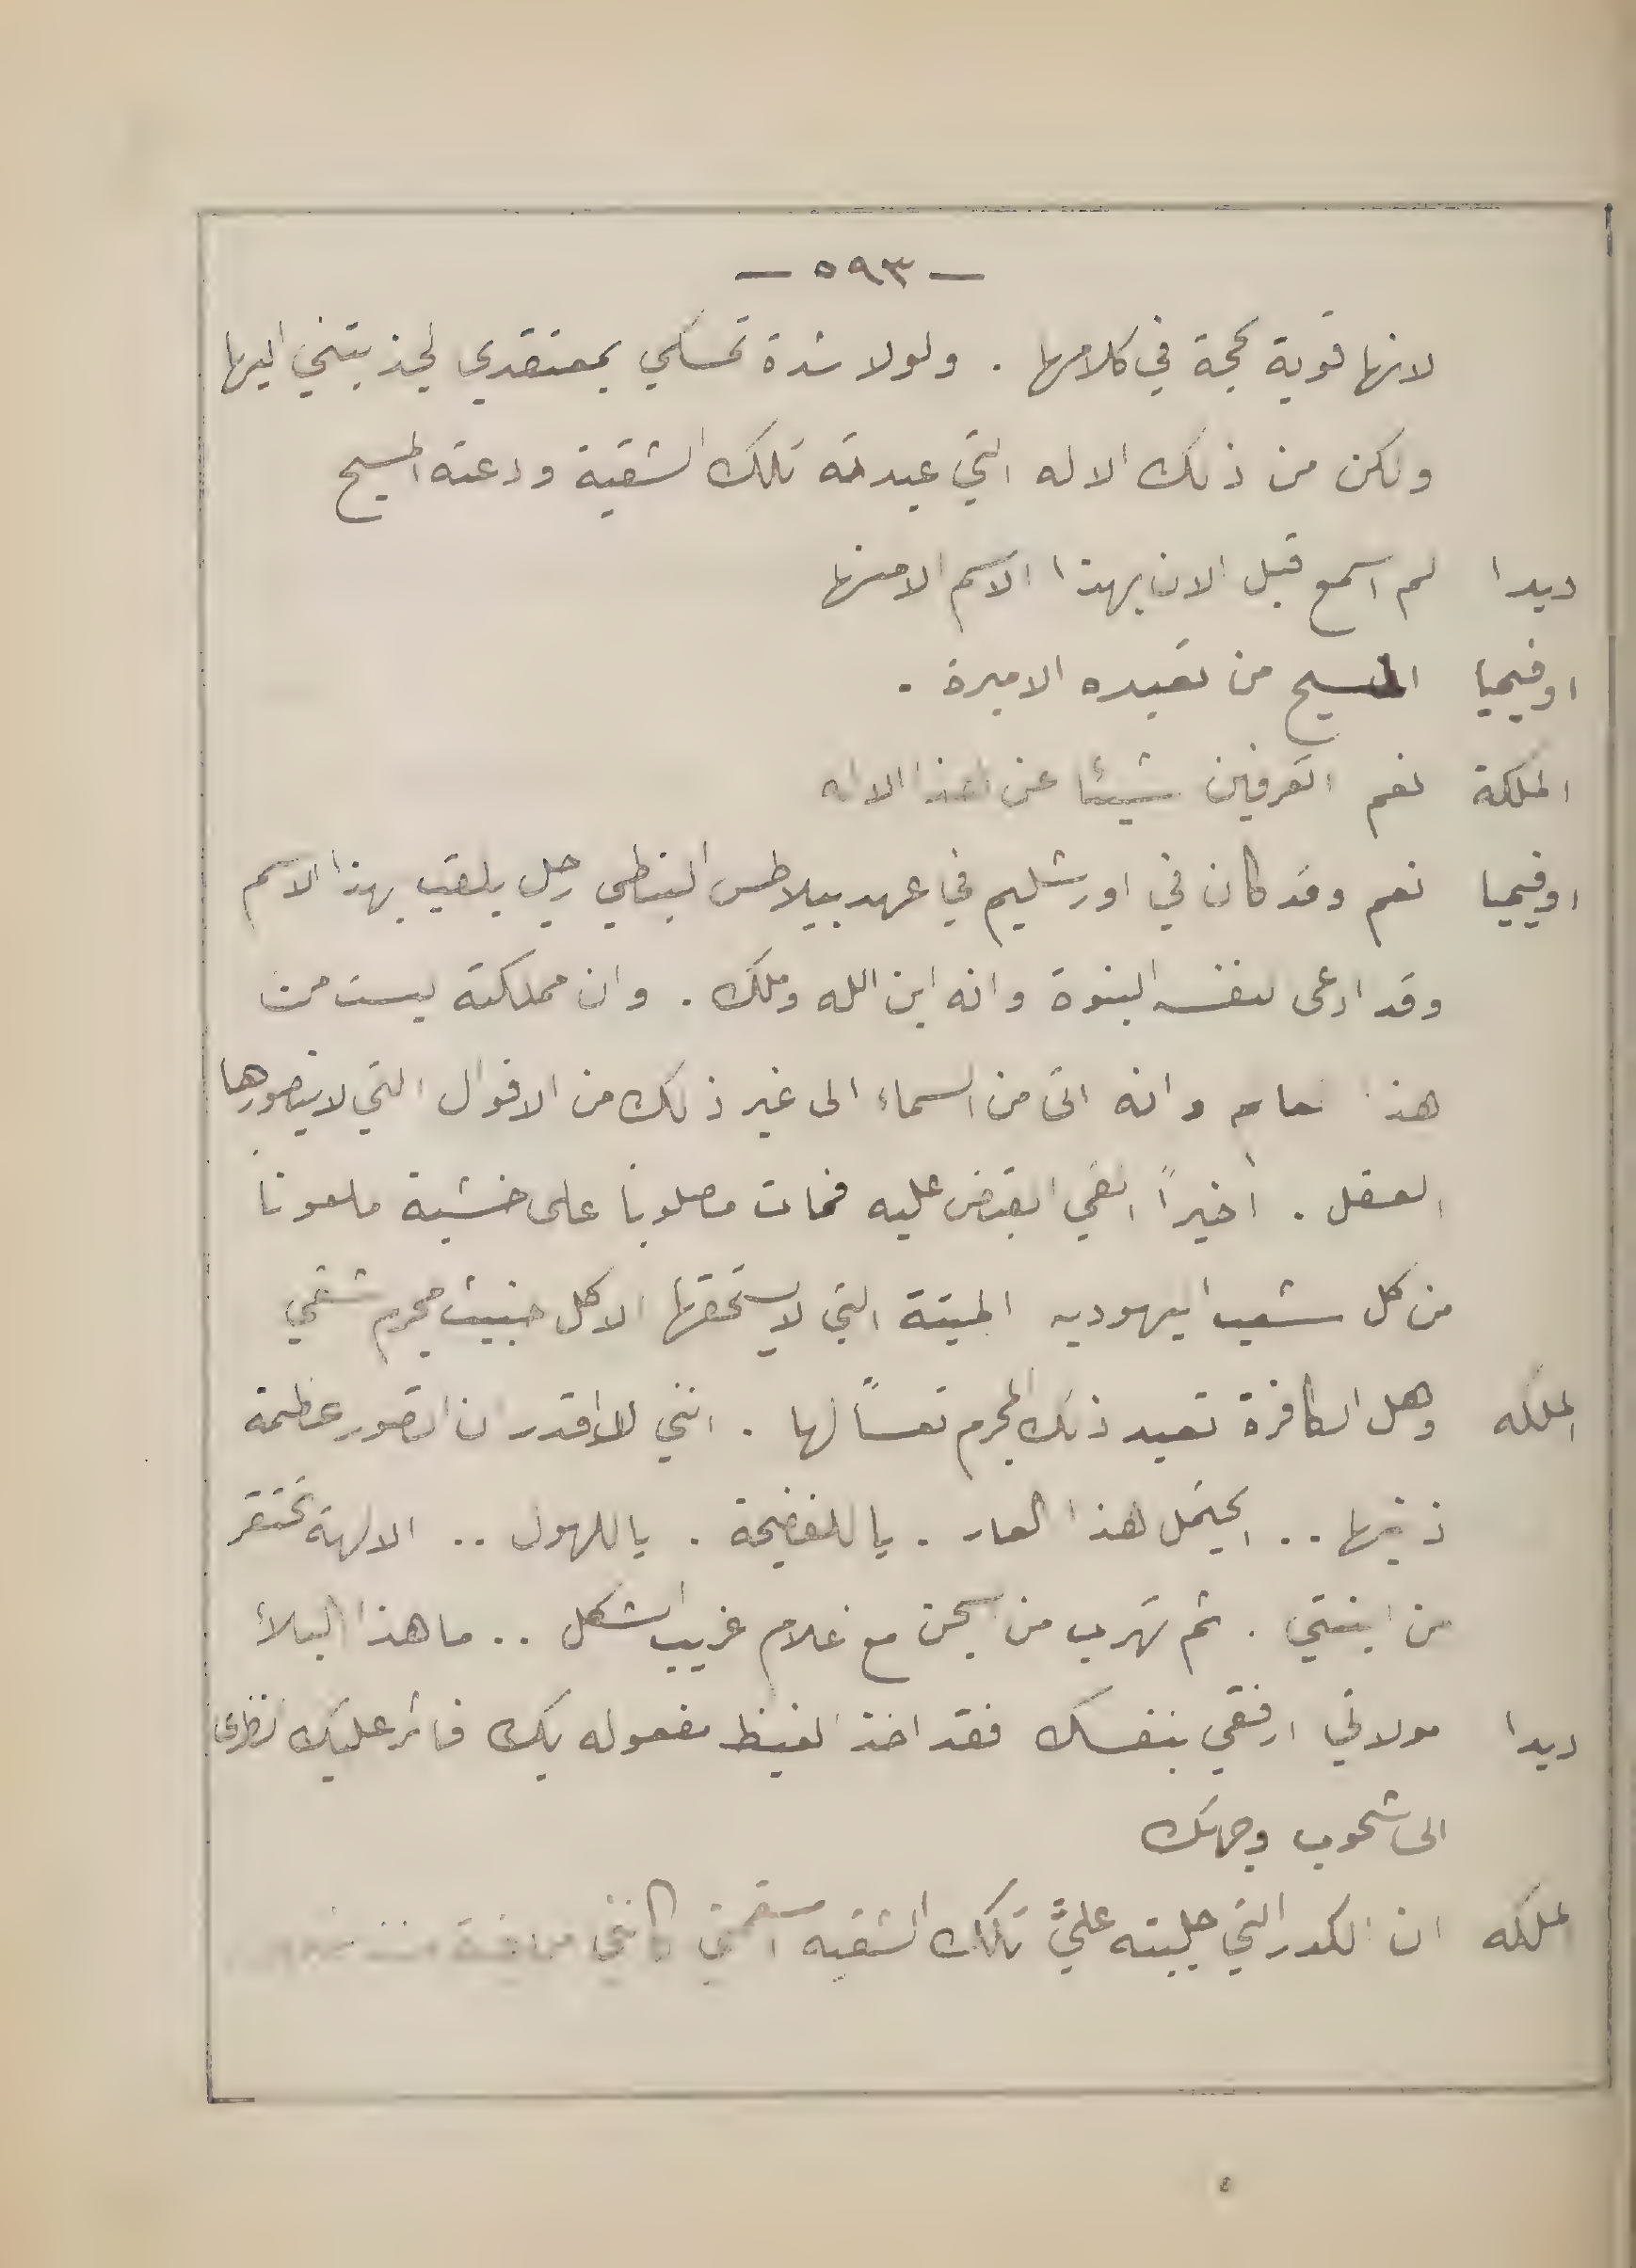 — ٥٩٣ —
لانها قوية حجة في كلامها . ولولا شدة تمسكي بمعتقدي لجذبتني اليها
ولكن من ذلك الاله التي عبدته تلك الشقية ودعته المسيح
ديدا لم اسمع قبل الان بهذا الاسم الا منها
اوفيميا المسيح من تعبده الاميرة .
الملكة نعم اتعرفين شيئا عن هذا الاله
اوفيميا نعم وقد كان في اورشليم في عهد بيلاطس البنطي رجل يلقب بهذا الاسم
وقد ادعى لنفسه البنوة وانه ابن الله وملك . وان مملكته ليست من
هذا وانه اتى من السماء الى غير ذلك من الاقوال التي لا يتصورها
العقل . اخيراً القي القبض عليه فمات مصلوبا على خشبة ملعونا
من كل شعب اليهوديه الميتة التي لا يستحقها الا كل خبيث مجرم شقي
الملكه وهل الكافرة تعبد ذلك المجرم تعساً لها . انني لا اقدر ان اتصور عظمة
ذنبها .. ايحتمل هذا العار . يا للفضيحة . يا للهول .. الالهة تحتقر
من ابنتي . ثم تهرب من السجن مع غلام غريب الشكل .. ما هذا البلاء
ديدا مولاتي ارفقي بنفسك فقد اخذ الغيظ مفعوله بك فاثر عليك انظري
الى شحوب وجهك
الملكه ان الكدر التي جلبته عليَّ تلك الشقيه اسقمتني كانني